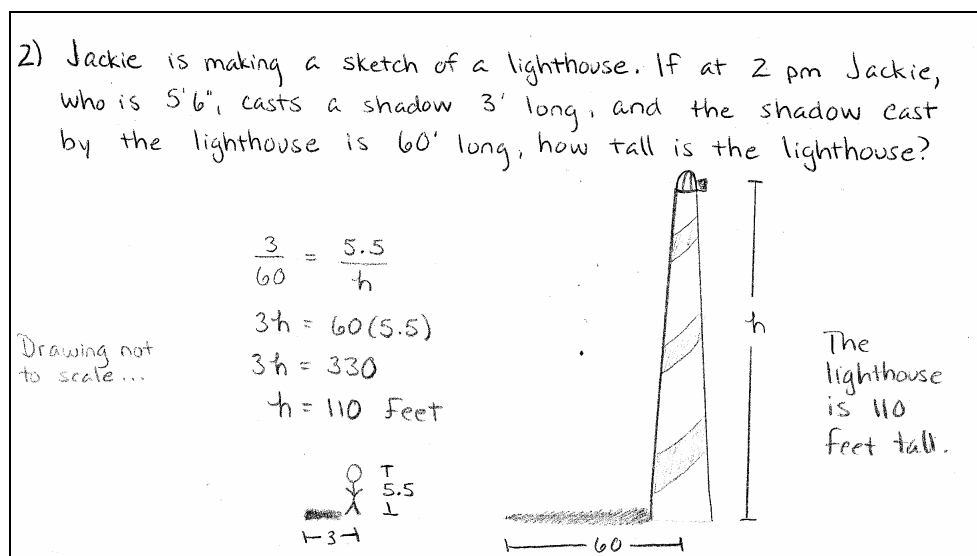 2) Jackie is making a sketch of a lighthouse. If at 2 pm Jackie,
who is 5'6", casts a shadow 3' long, and the shadow cast
by the lighthouse is 60' long, how tall is the lighthouse?
3/60 = 5.5/h
3h = 60(5.5)
3h = 330
h = 110 feet
Drawing not
to scale...
5.5
3
60
h
The
lighthouse
is 110
feet tall.